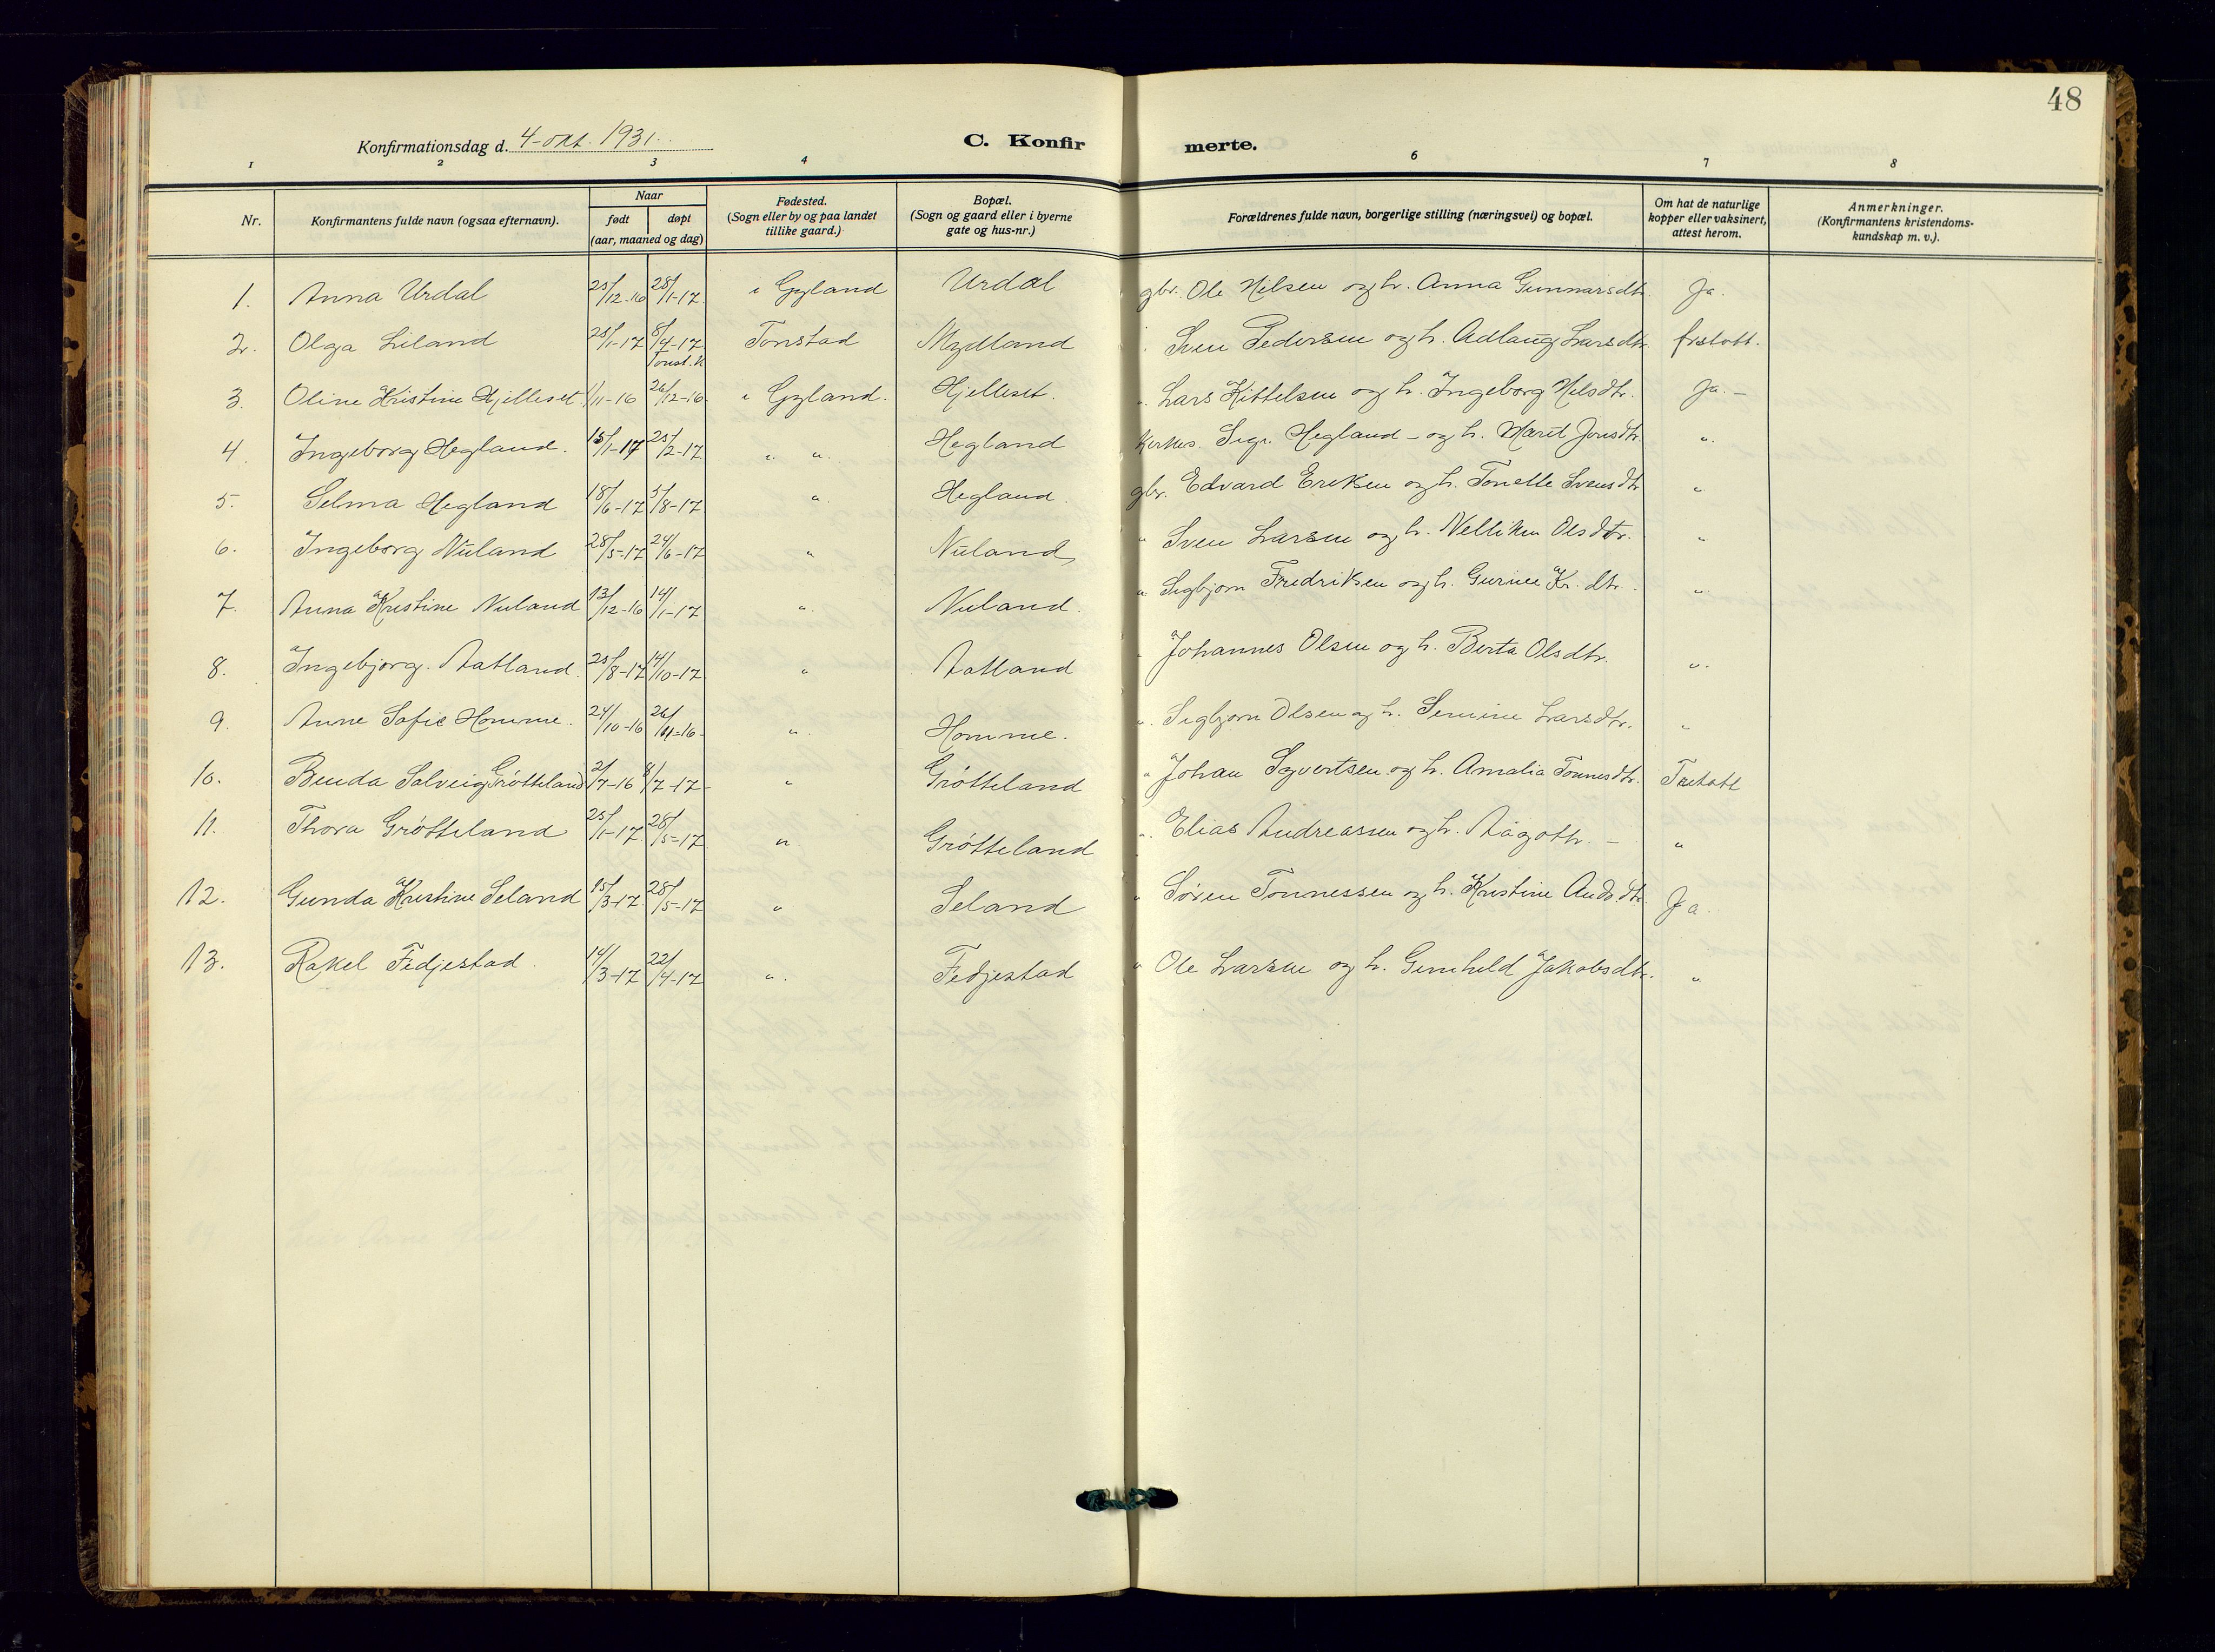 48
Konfirmationsdag d. 4-okt. 1931. C. Konfirmerte.
1 2 3 4 6 7 8
Nr. Konfirmantens fulde navn (ogsaa efternavn). Naar født døpt (aar, maaned og dag) Fødested. (Sogn eller by og paa landet tillike gaard.) Bopæl. (Sogn og gaard eller i byerne gate og hus-nr.) Forældrenes fulde navn, borgerlige stilling (næringsvei) og bopæl. Om hat de naturlige kopper eller vaksinert, attest herom. Anmerkninger. (Konfirmantens kristendoms-kundskap m. v.).
1. Anna Urdal 25/12-16 28/1-17 i Gyland Urdal gbr. Ole Nilsen og h. Anna Gunnarsdtr. Ja.
2. Olga Liland 25/1-17 8/4-17 Tonst. k Tonstad Mydland Sven Pedersen og h. Adlaug Larsdtr.
3. Oline Kristine Hjelleset 1/11-16 26/12-16 i Gyland. Hjelleset. " Lars Kittelsen og h. Ingeborg Nilsdtr. Ja. -
4. Ingeborg Hegland. 15/1-17 25/2-17 " " Hegland Sigr. Hegland - og h. Marit Jonsdtr. "
5. Selma Hegland 18/6-17 5/8-17 " Hegland. gbr. Edvard Eriksen og h. Tonette Svensdtr "
6. Ingeborg Nuland 28/5-17 24/6-17 " Nuland " Sven Larsen og h. Nelliken Olsdtr. "
7. Anna Kristine Nuland 13/12-16 14/1-17 " Nuland. " Sigbjørn Fredriksen og h. Gurine Kr. dtr. "
8. Ingebjørg. Aatland. 25/8-17 14/10-17 " Aatland " Johannes Olsen og h. Berta Olsdtr. "
9. Anne Sofie Homme. 24/10-16 26/11-16 " Homme. " Sigbjørn Olsen og h. Semine Larsdtr. "
10. Benda Solveig Grøtteland 2/7-16 8/7-17 " Grøtteland " Johan Syvertsen og h. Amalia Tonnesdtr.
11. Thora Grøtteland 25/1-17 28/5-17 " Grøtteland " Elias Andreassen og h. Aagoth. - "
12. Gunda Kristine Seland 15/3-17 28/5-17 " Seland " Søren Tonnessen og h. Kristine Ands.dtr Ja.
13. Rakel Fedjestad. 14/3-17 22/4-17 " Fedjestad " Ole Larsen og h. Gunhild Jakobsdtr. "